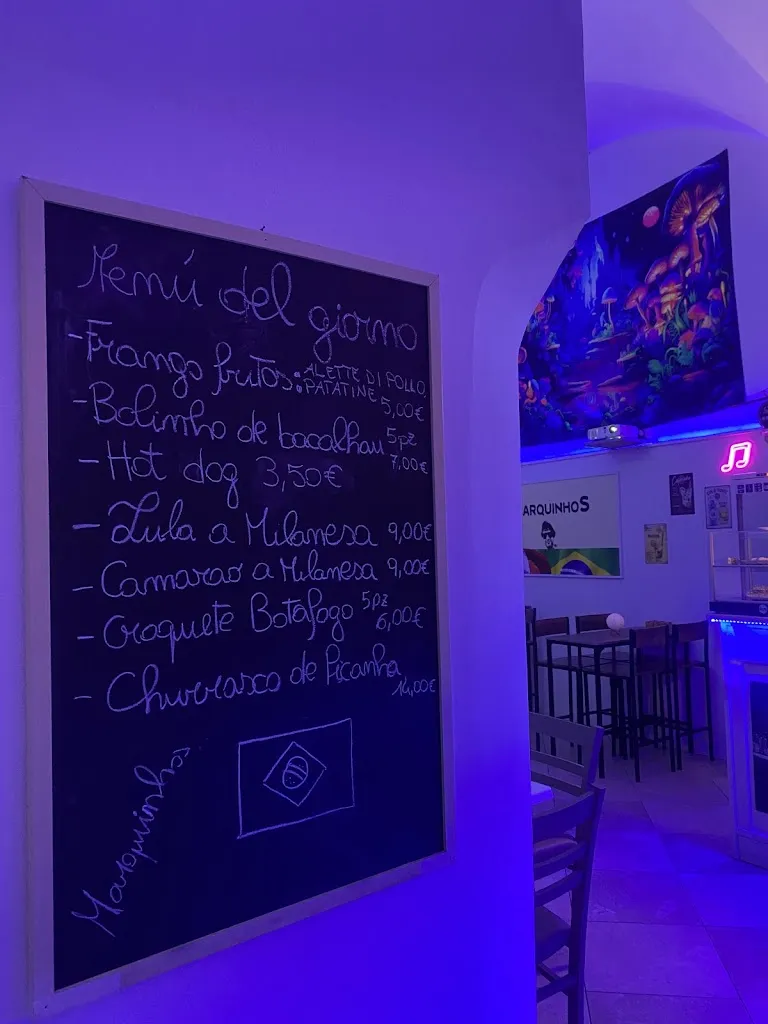 Menú del giorno
- Frango fritos: ALETTE DI POLLO,
PATATINE 5,00€
- Bolinho de bacalhau 5pz
7,00€
- Hot dog 3,50€
- Lula a Milanesa 9,00€
- Camarao a Milanesa 9,00€
- Croquete Botafogo 5pz
6,00€
- Churrasco de Picanha
14,00€
Marquinhos
ARQUINHOS